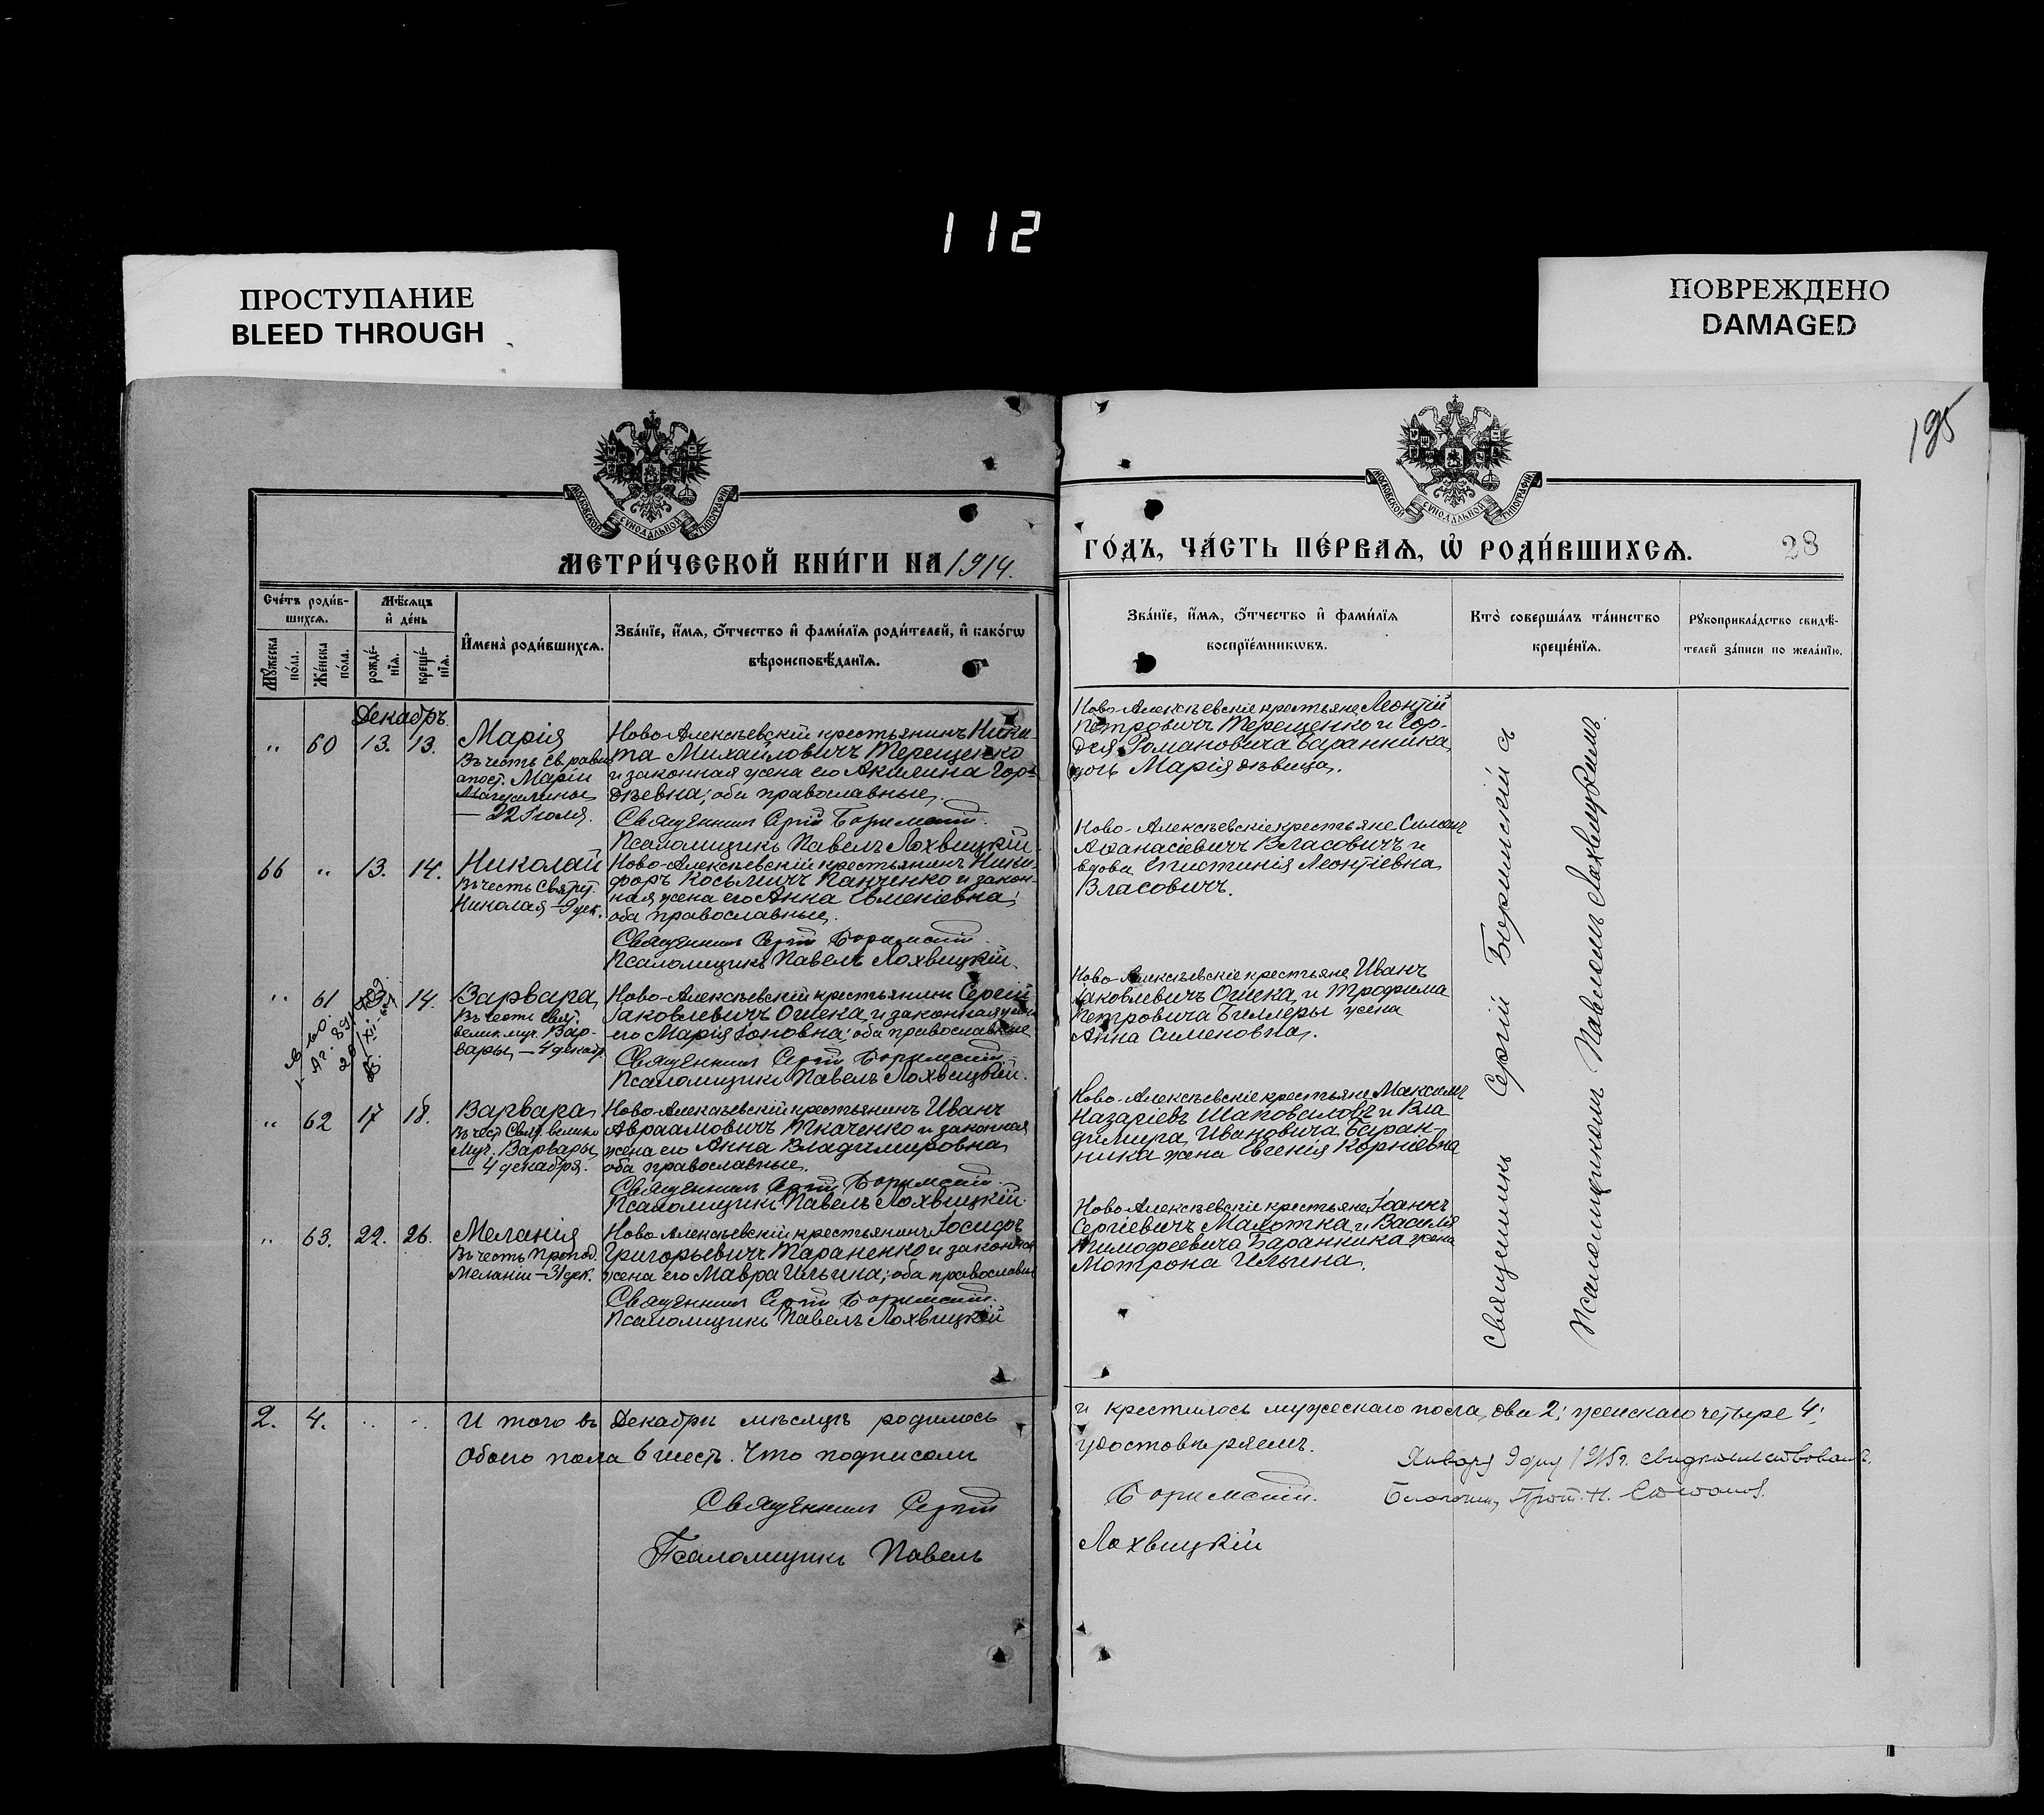 112
ПРОСТУПАНИЕ
BLEED THROUGH
ПОВРЕЖДЕНО
DAMAGED
195
МОСКОВСКОЙ СѴНОДАЛЬНОЙ ТИПОГРАФІИ
МОСКОВСКОЙ СѴНОДАЛЬНОЙ ТИПОГРАФІИ
МЕТРИ́ЧЕСКОЙ КНИ́ГИ НА 1914.
ГО́ДЪ, ЧА́СТЬ ПЕ́РВАѦ, Ѡ҆ РОДИ́ВШИХСѦ.
28
Сче́тъ роди́в-
шихсѧ.
Мѣ́сѧцъ
и҆ де́нь
Мꙋ́жеска
по́ла.
Же́нска
по́ла.
рожде́-
нїѧ.
креще́-
нїѧ.
И҆мена̀ роди́вшихсѧ.
Зва́нїе, и҆́мѧ, ѻ҆́тчество и҆ фами́лїѧ роди́телей, и҆ како́гѡ
вѣроисповѣ́данїѧ.
Зва́нїе, и҆́мѧ, ѻ҆́тчество и҆ фами́лїѧ
воспрїе́мникѡвъ.
Кто̀ соверша́лъ та́инство
креще́нїѧ.
Рꙋкоприкла́дство свидѣ́-
телей за́писи по жела́нїю.
Декабрь.
" 60 13. 13.
Марія
Въ честь св. равно
апост. Маріи
Магдалины
— 22 Іюля.
Ново-Алексѣевскій крестьянинъ Ники-
та Михайловичъ Терещенко
и законная жена его Акилина Гор-
дѣевна; оба православные.
Священникъ Сергій Боримскій.
Псаломщикъ Павелъ Лохвицкій.
Ново-Алексѣевскіе крестьяне Леонтій
Петровичъ Терещенко и Гор-
дея Романовича Баранника
дочь Марія дѣвица.
66 " 13. 14.
Николай
Въ честь Свят.
Николая — 9 дек.
Ново-Алексѣевскій крестьянинъ Ники-
форъ Косьмичъ Панченко и закон-
ная жена его Анна Евменіевна;
оба православные.
Священникъ Сергій Боримскій.
Псаломщикъ Павелъ Лохвицкій.
Ново-Алексѣевскіе крестьяне Симеонъ
Аѳанасіевичъ Власовичъ и
вдова Епистинія Леонтіевна
Власовичъ.
" 61 14.
Варвара
Въ честь Свят.
велик. муч. Вар-
вары — 4 декабр.
Ново-Алексѣевскій крестьянинъ Сергій
Іаковлевичъ Ошека и законная жена
его Марія Іоновна; оба православные
Священникъ Сергій Боримскій.
Псаломщикъ Павелъ Лохвицкій.
Ново-Алексѣевскіе крестьяне Иванъ
Іаковлевичъ Ошека и Трофима
Петровича Биллеры жена
Анна Сименовна.
" 62 17 18.
Варвара
Въ чест. Свят. велико
Муч. Варвары
— 4 декабря.
Ново-Алексѣевскій крестьянинъ Иванъ
Авраамовичъ Ткаченко и законная
жена его Анна Владимировна
оба православные.
Священникъ Сергій Боримскій.
Псаломщикъ Павелъ Лохвицкій.
Ново-Алексѣевскіе крестьяне Максимъ
Назаріевъ Шаповаловъ и Вла-
димира Ивановича Баран-
ника жена Евгенія Корніевна
" 63. 22. 26.
Меланія
Въ честь препод.
Меланіи — 31 дек.
Ново-Алексѣевскій крестьянинъ Іосифъ
Григорьевичъ Тараненко и законная
жена его Мавра Ильина; оба православные
Священникъ Сергій Боримскій.
Псаломщикъ Павелъ Лохвицкій
Ново-Алексѣевскіе крестьяне Іоаннъ
Сергіевичъ Малотка и Василія
Тимофеевича Баранника жена
Мотрона Ильина.
Священникъ Сергій Боримскій съ
Псаломщикомъ Павломъ Лохвицкимъ.
2. 4.
И того въ Декабрѣ мѣсяцѣ родилось
и крестилось мужескаго пола два 2; женскаго четыре 4;
Обоего пола 6 шесть. Что подписомъ
удостовѣряемъ.
Января 9 дня 1915 г. свидѣтельствовалъ.
Священникъ Сергій
Боримскій.
Псаломщикъ Павелъ
Лохвицкій